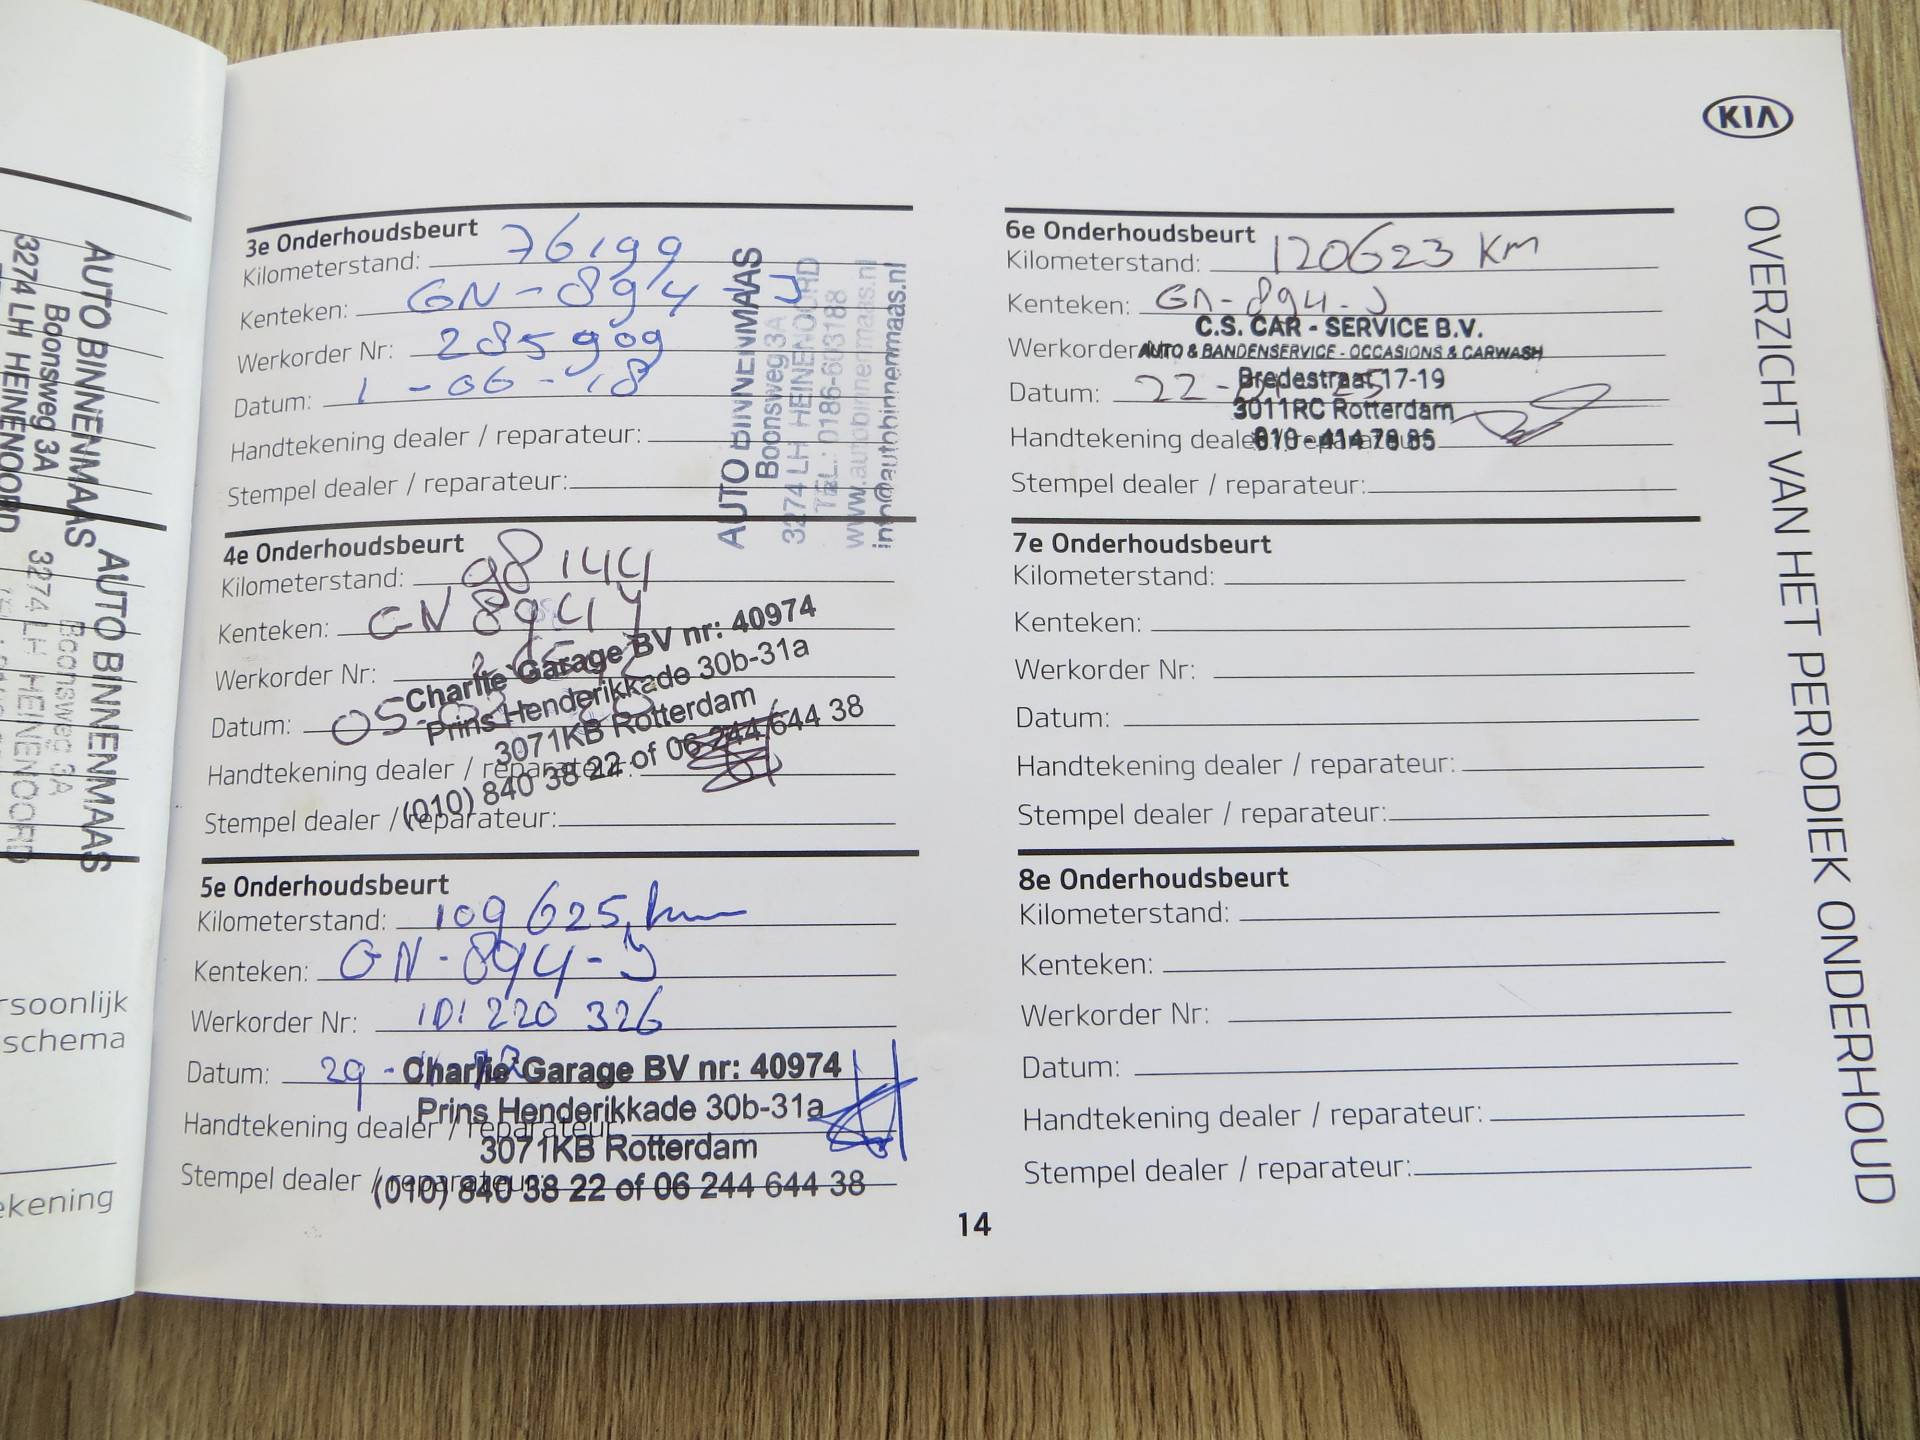 KIA
OVERZICHT VAN HET PERIODIEK ONDERHOUD
AUTO BINNENMAAS
Boonsweg 3A
3274 LH HEINENOORD
AUTO BINNENMAAS
Boonsweg 3A
3274 LH HEINENOORD
rsoonlijk
schema
ekening
3e Onderhoudsbeurt
Kilometerstand: 76199
Kenteken: GN-894-J
Werkorder Nr: 285909
Datum: 1-06-18
Handtekening dealer / reparateur:
Stempel dealer / reparateur:
AUTO BINNENMAAS
Boonsweg 3A
3274 LH HEINENOORD
TEL.: 0186-603188
www.autobinnenmaas.nl
info@autobinnenmaas.nl
4e Onderhoudsbeurt
Kilometerstand: 98144
Kenteken: GN 894 J
Werkorder Nr:
Datum: 05-
Handtekening dealer / reparateur:
Stempel dealer / reparateur:
Charlie Garage BV nr: 40974
Prins Henderikkade 30b-31a
3071KB Rotterdam
(010) 840 38 22 of 06 244 644 38
5e Onderhoudsbeurt
Kilometerstand: 109625 km
Kenteken: GN-894-J
Werkorder Nr: 101220326
Datum: 29-
Handtekening dealer / reparateur:
Stempel dealer / reparateur:
Charlie Garage BV nr: 40974
Prins Henderikkade 30b-31a
3071KB Rotterdam
(010) 840 38 22 of 06 244 644 38
6e Onderhoudsbeurt
Kilometerstand: 120623 KM
Kenteken: GN-894-J
Werkorder
Datum: 22-
Handtekening dealer / reparateur:
Stempel dealer / reparateur:
C.S. CAR - SERVICE B.V.
AUTO & BANDENSERVICE - OCCASIONS & CARWASH
Bredestraat 17-19
3011RC Rotterdam
010 - 414 78 85
7e Onderhoudsbeurt
Kilometerstand:
Kenteken:
Werkorder Nr:
Datum:
Handtekening dealer / reparateur:
Stempel dealer / reparateur:
8e Onderhoudsbeurt
Kilometerstand:
Kenteken:
Werkorder Nr:
Datum:
Handtekening dealer / reparateur:
Stempel dealer / reparateur:
14